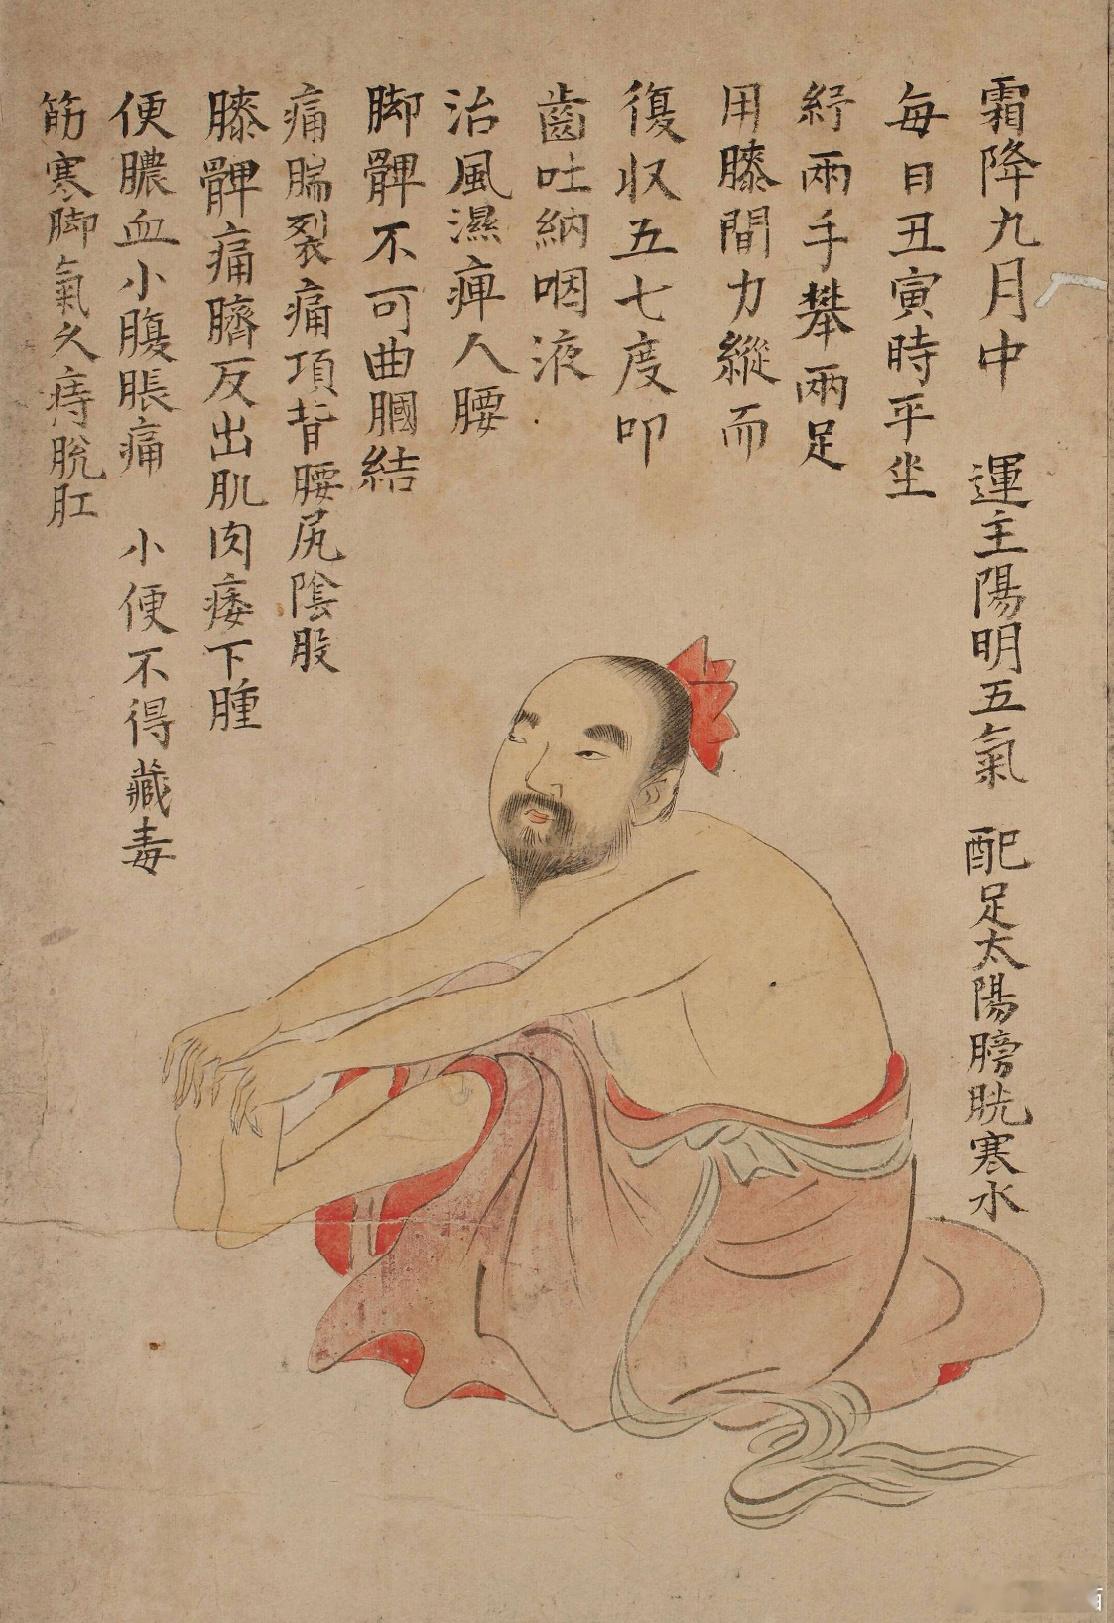 霜降九月中　運主陽明五氣　配足太陽膀胱寒水
每日丑寅時平坐
紓兩手攀兩足
用膝間力縱而
復収五七度叩
齒吐納咽液
治風濕痺人腰
脚髀不可曲膕結
痛腨裂痛項背腰尻陰股
膝髀痛臍反出肌肉痿下腫
便膿血小腹脹痛　小便不得藏毒
筋寒脚氣久痔脫肛